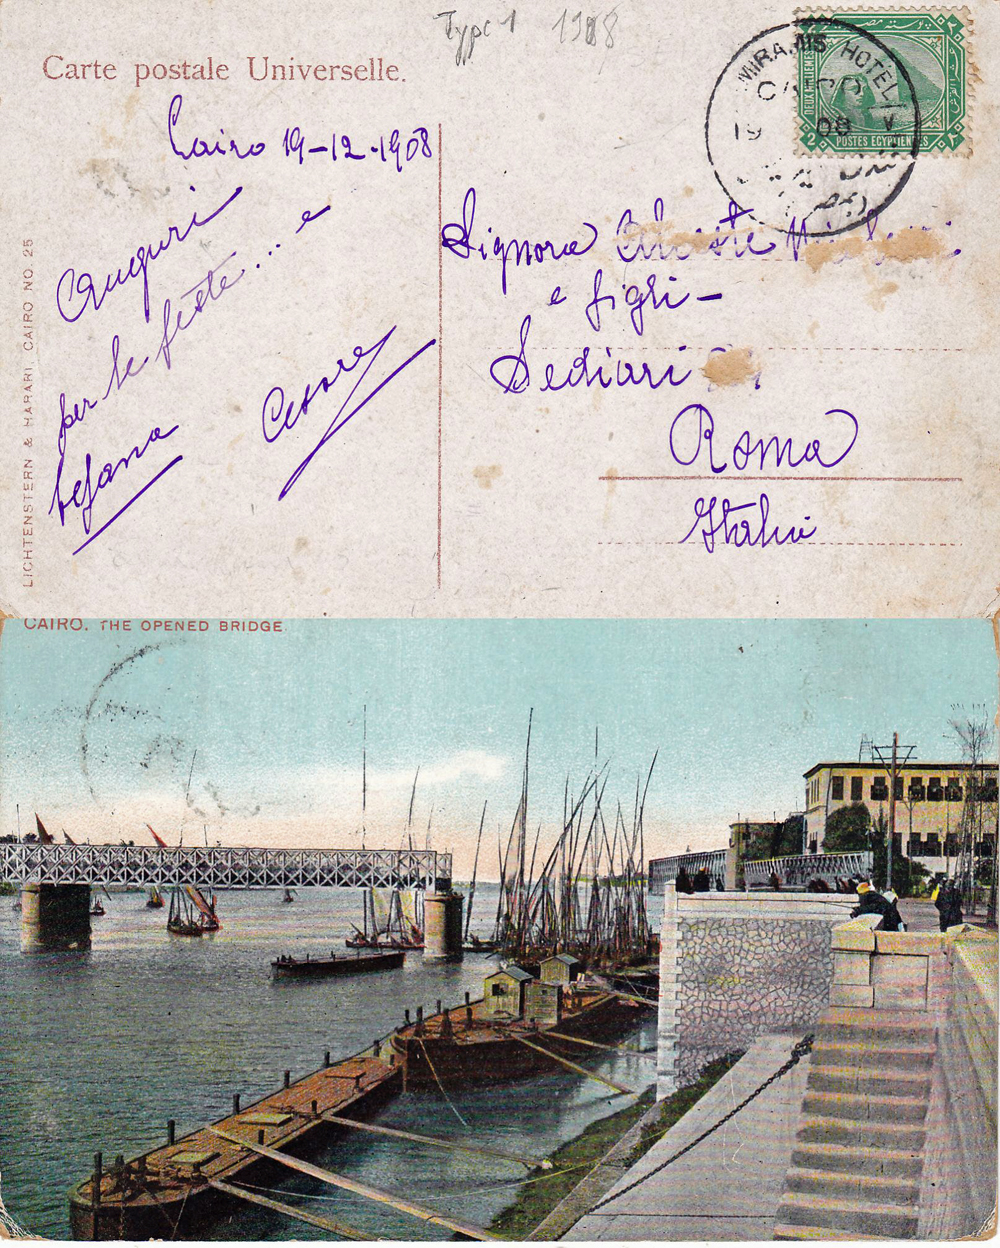 Type 1 1908
Carte postale Universelle.
MIRAMIS HOTEL
CAIRO
19 08
DEUX MILLIEMES
بوسته مصرية
2 POSTES EGYPTIENNES 2
Cairo 19-12-1908
Auguri
per le feste... e
befana
Cesare
Signora
e figli -
Sediari
Roma
Italia
LICHTENSTERN & HARARI, CAIRO NO. 25
CAIRO. THE OPENED BRIDGE.